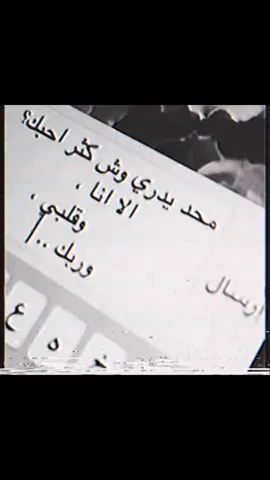 محد يدري وش كثر احبك؟
الا انا ،
وقلبي ،
وربك ..
ارسال
ع
ه
خ